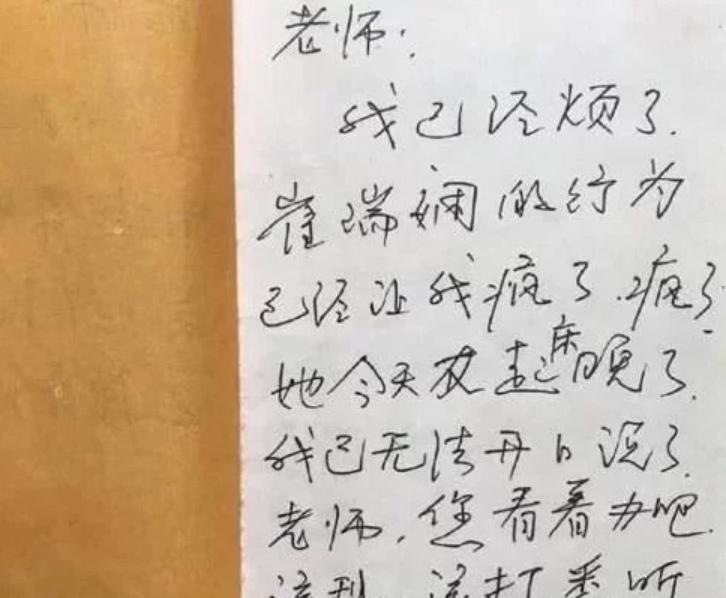 老师:
我已经烦了.
崔瑞娴的行为
已经让我疯了.疯了
她今天又起床晚了.
我已无法开口说了.
老师.您看着办吧.
该刑 该打悉听